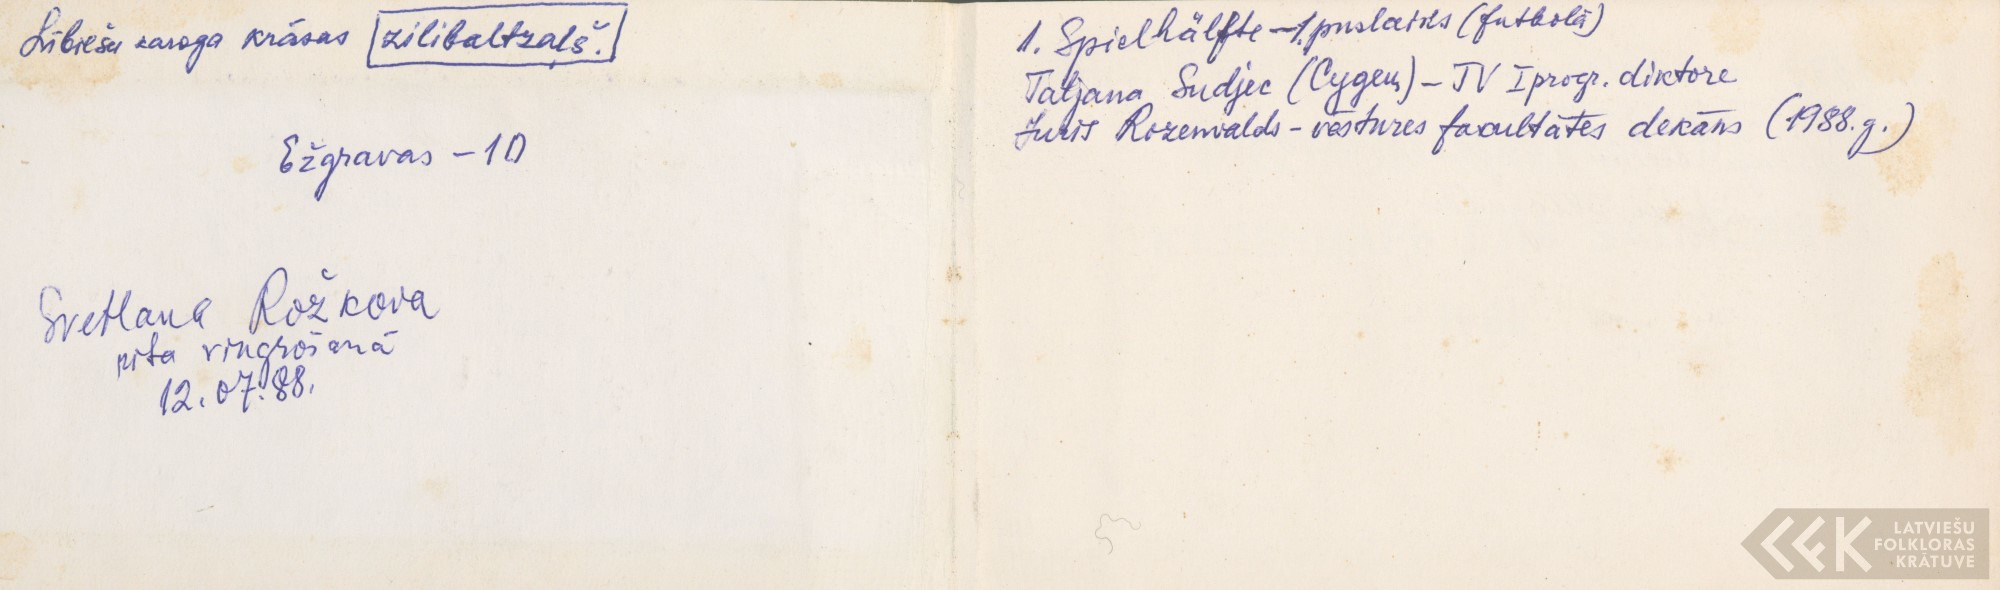 Lībiešu karoga krāsas zilibaltzaļš.
Ežgravas - 1D
Svetlana Rožkova
rīta vingrošanā
12.07.88.
1. Spielhälfte - 1. puslaiks (futbolā)
Tatjana Sudjec (Cygen) - TV I progr. diktore
Juris Rozenvalds - vēstures fakultātes dekāns (1988.g.)
LATVIEŠU
FOLKLORAS
KRĀTUVE